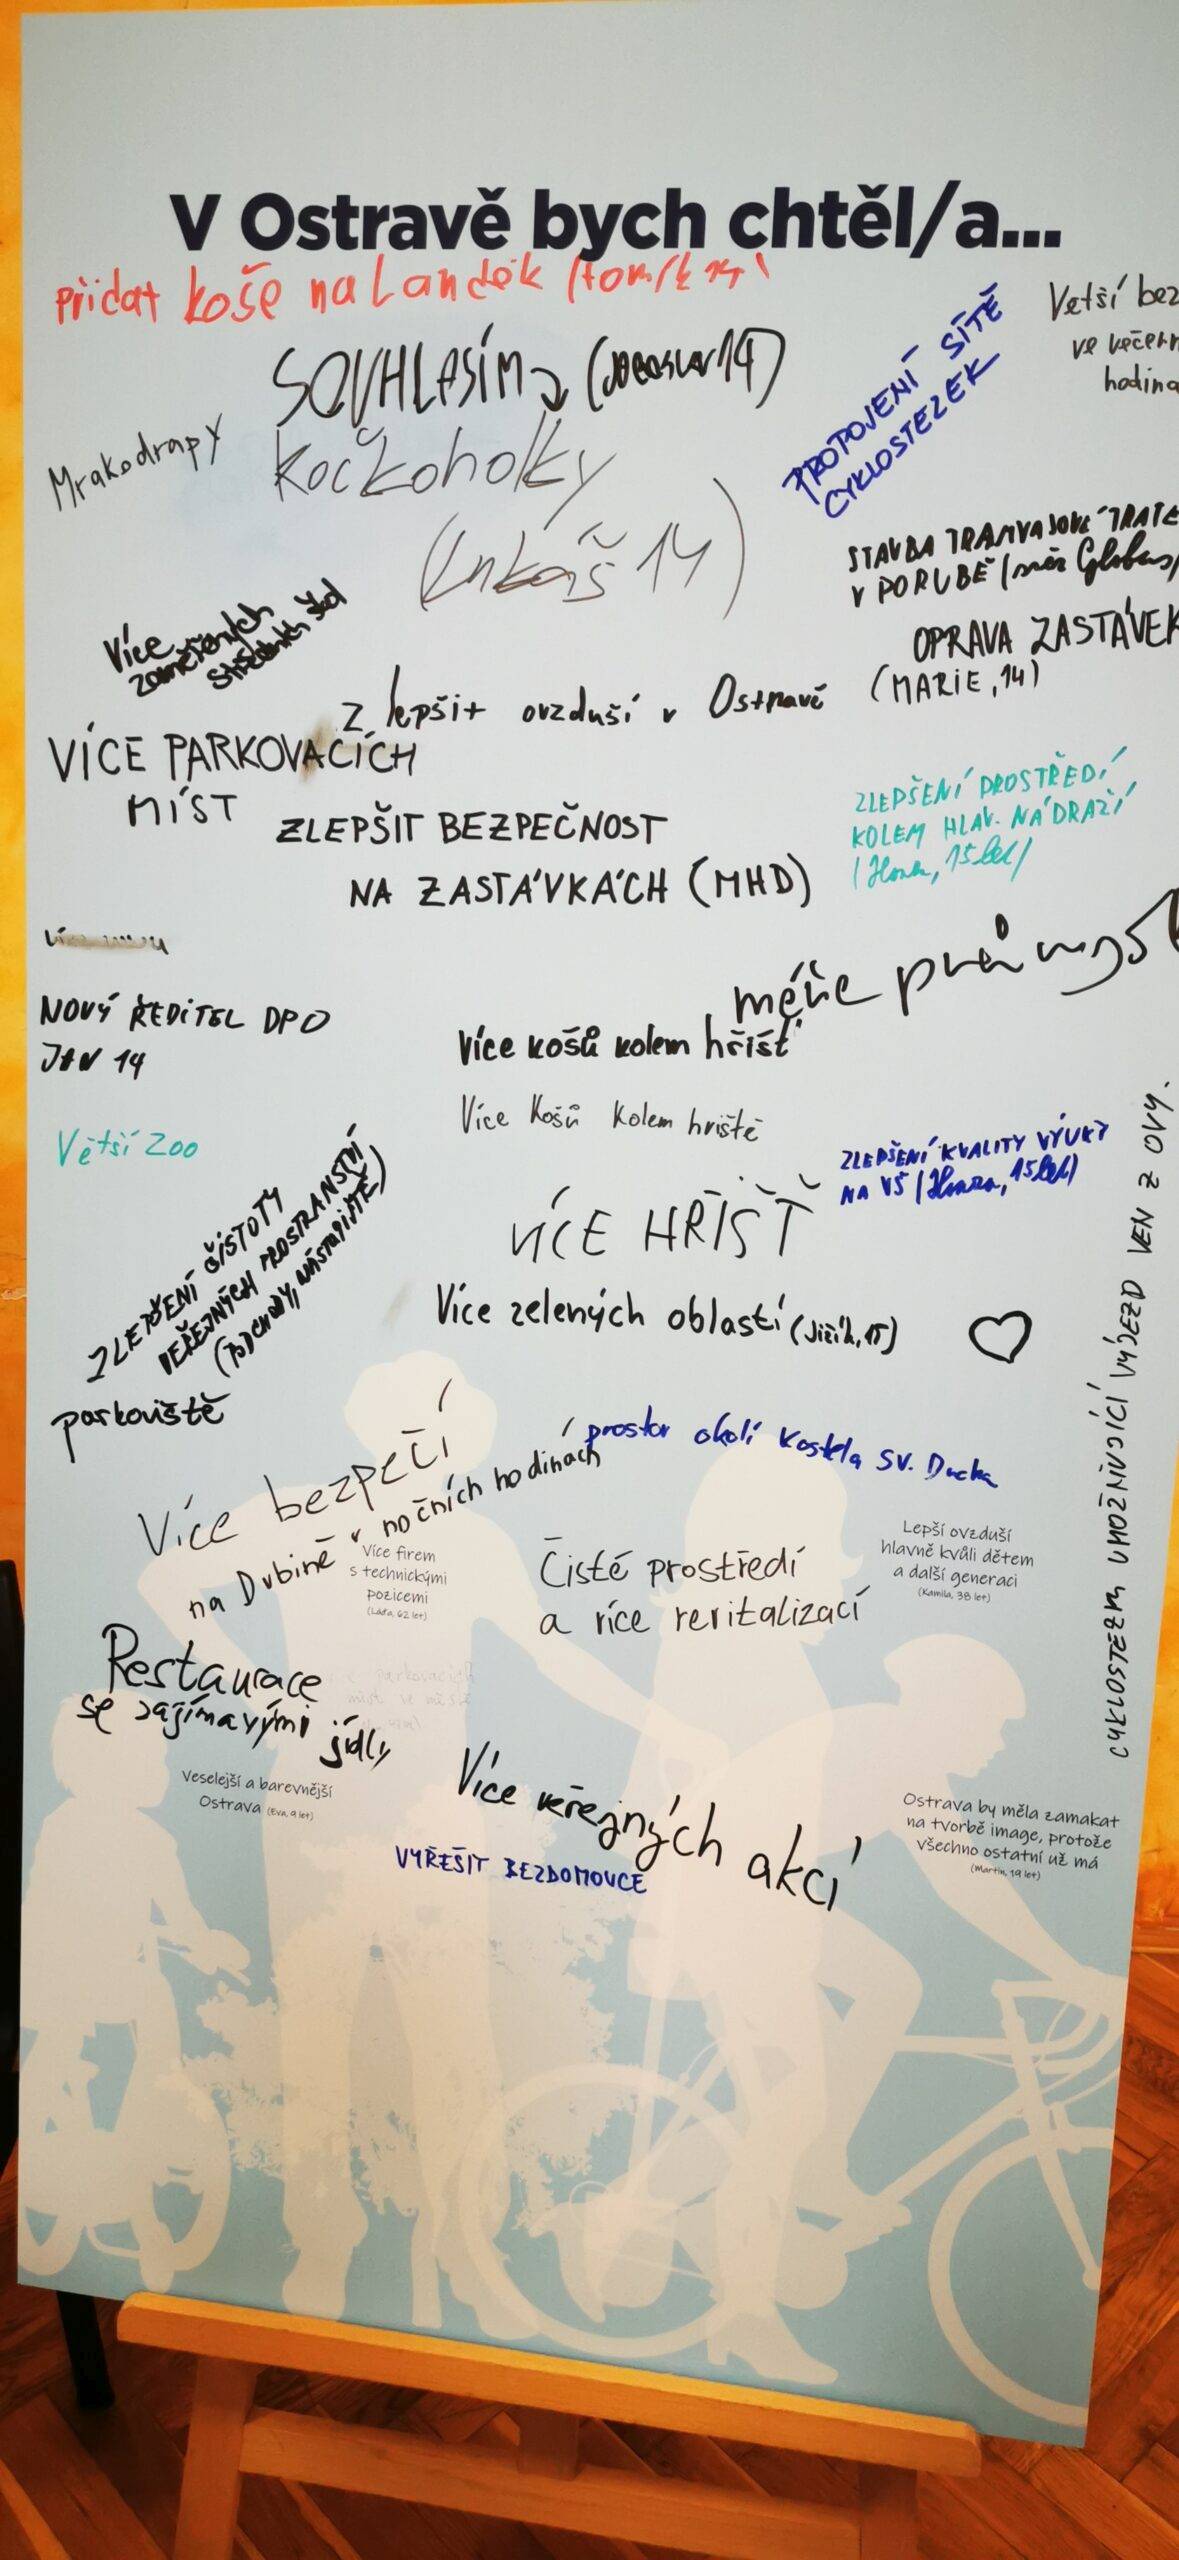 V Ostravě bych chtěl/a...
přidat koše na Landek
SOUHLASÍM
Mrakodrapy
kočkoholky
(Lukáš 14)
PROPOJENÍ SÍTĚ
CYKLOSTEZEK
Vetší bez
ve večern
hodina
STAVBA TRAMVAJOVÉ TRATĚ
V PORUBĚ (směr Globus)
OPRAVA ZASTÁVEK
(MARIE, 14)
Více
zaměřených
středních škol
Zlepšit ovzduší v Ostravě
VÍCE PARKOVACÍCH
MÍST
ZLEPŠIT BEZPEČNOST
NA ZASTÁVKÁCH (MHD)
ZLEPŠENÍ PROSTŘEDÍ
KOLEM HLAV. NÁDRAŽÍ
15 let)
méňe průmysl
NOVÝ ŘEDITEL DPO
JAN 14
Více košů kolem hříšť
Více Košů kolem hriště
Větší Zoo
ZLEPŠENÍ KVALITY VÝUKY
NA VŠ (Honza, 15 let)
ZLEPŠENÍ ČISTOTY
VEŘEJNÝCH PROSTRANSTVÍ
(PODCHODY, NÁSTUPIŠTĚ)
VÍCE HŘIŠŤ
Více zelených oblastí (Jiřík, 15)
CYKLOSTEZKM UMOŽŇUJÍCÍ VÝJEZD VEN Z OVY.
parkoviště
prostor okolí Kostela sv. Ducha
Více bezpečí
na Dubině v nočních hodinách
Více firem
s technickými
pozicemi
(Láďa, 62 let)
Čisté prostředí
a více revitalizací
Lepší ovzduší
hlavně kvůli dětem
a další generaci
(Kamila, 38 let)
Restaurace
se zajímavými jídly
parkovacích
míst ve městě
Veselejší a barevnější
Ostrava (Eva, 9 let)
Více veřejných akcí
VYŘEŠIT BEZDOMOVCE
Ostrava by měla zamakat
na tvorbě image, protože
všechno ostatní už má
(Martin, 19 let)